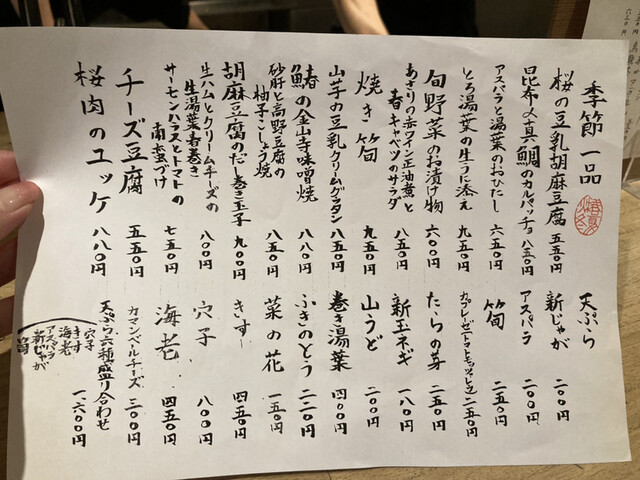 季節一品
桜の豆乳胡麻豆腐 五五〇円
昆布〆真鯛のカルパッチョ 八五〇円
アスパラと湯葉のおひたし 六五〇円
とろ湯葉の生うに添え 九五〇円
旬野菜のお漬け物 六〇〇円
あさりの赤ワイン正油煮と
春キャベツのサラダ 八五〇円
焼き筍 九五〇円
山芋の豆乳クリームグラタン 八五〇円
鰆の金山寺味噌焼 八八〇円
砂肝と高野豆腐の
柚子こしょう焼 八五〇円
胡麻豆腐のだし巻き玉子 九〇〇円
生ハムとクリームチーズの
生湯葉春巻き 八〇〇円
サーモンハラスとトマトの
南蛮づけ 七五〇円
チーズ豆腐 五五〇円
桜肉のユッケ 八八〇円
天ぷら
新じゃが 二〇〇円
アスパラ 二〇〇円
筍 二五〇円
二五〇円
たらの芽 二五〇円
新玉ネギ 一八〇円
山うど 二〇〇円
巻き湯葉 四〇〇円
ふきのとう 二二〇円
菜の花 一五〇円
きす 四五〇円
穴子 八〇〇円
海老 四五〇円
カマンベールチーズ 三〇〇円
天ぷら六種盛り合わせ 一、六〇〇円
穴子
きす
海老
アスパラ
新じゃが
筍